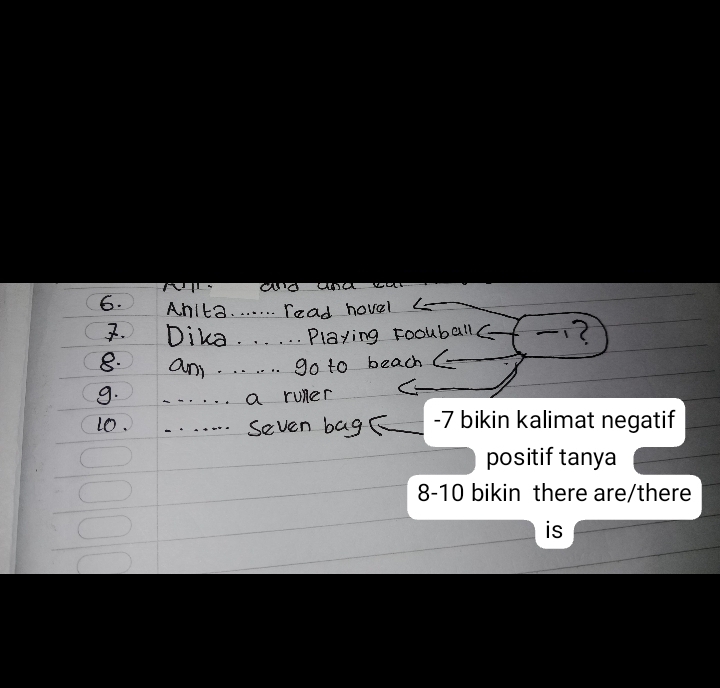 and and
6. Anita....... read novel
7. Dika ...... Playing Foouball
-, ?
8. am ...... go to beach
9. ...... a ruller
10. ....... seven bag
-7 bikin kalimat negatif
positif tanya
8-10 bikin there are/there
is